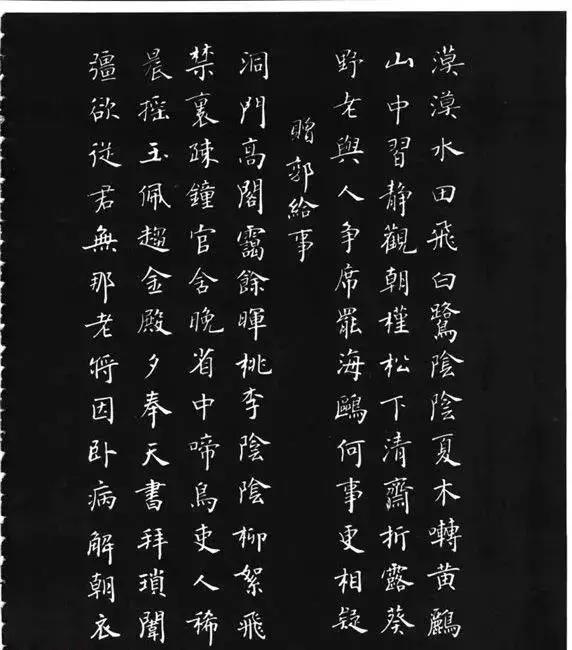 漠漠水田飛白鷺陰陰夏木囀黃鸝
山中習靜觀朝槿松下清齋折露葵
野老與人爭席罷海鷗何事更相疑
贈郭給事
洞門高閣靄餘暉桃李陰陰柳絮飛
禁裏疎鐘官舍晚省中啼鳥吏人稀
晨搖玉佩趨金殿夕奉天書拜瑣闈
彊欲從君無那老將因臥病解朝衣